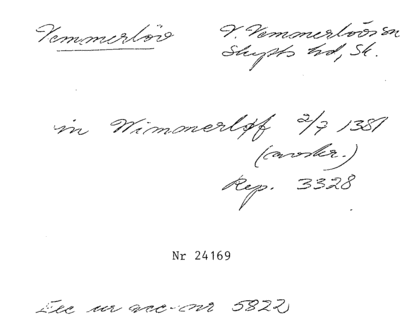 Vemmerlöv V. Vemmerlövs sn
Skytts hd, Sk.
in Wimmerløf 2/7 1381
(avskr.)
Rep. 3328
Nr 24169
Exc ur acc-nr 5822